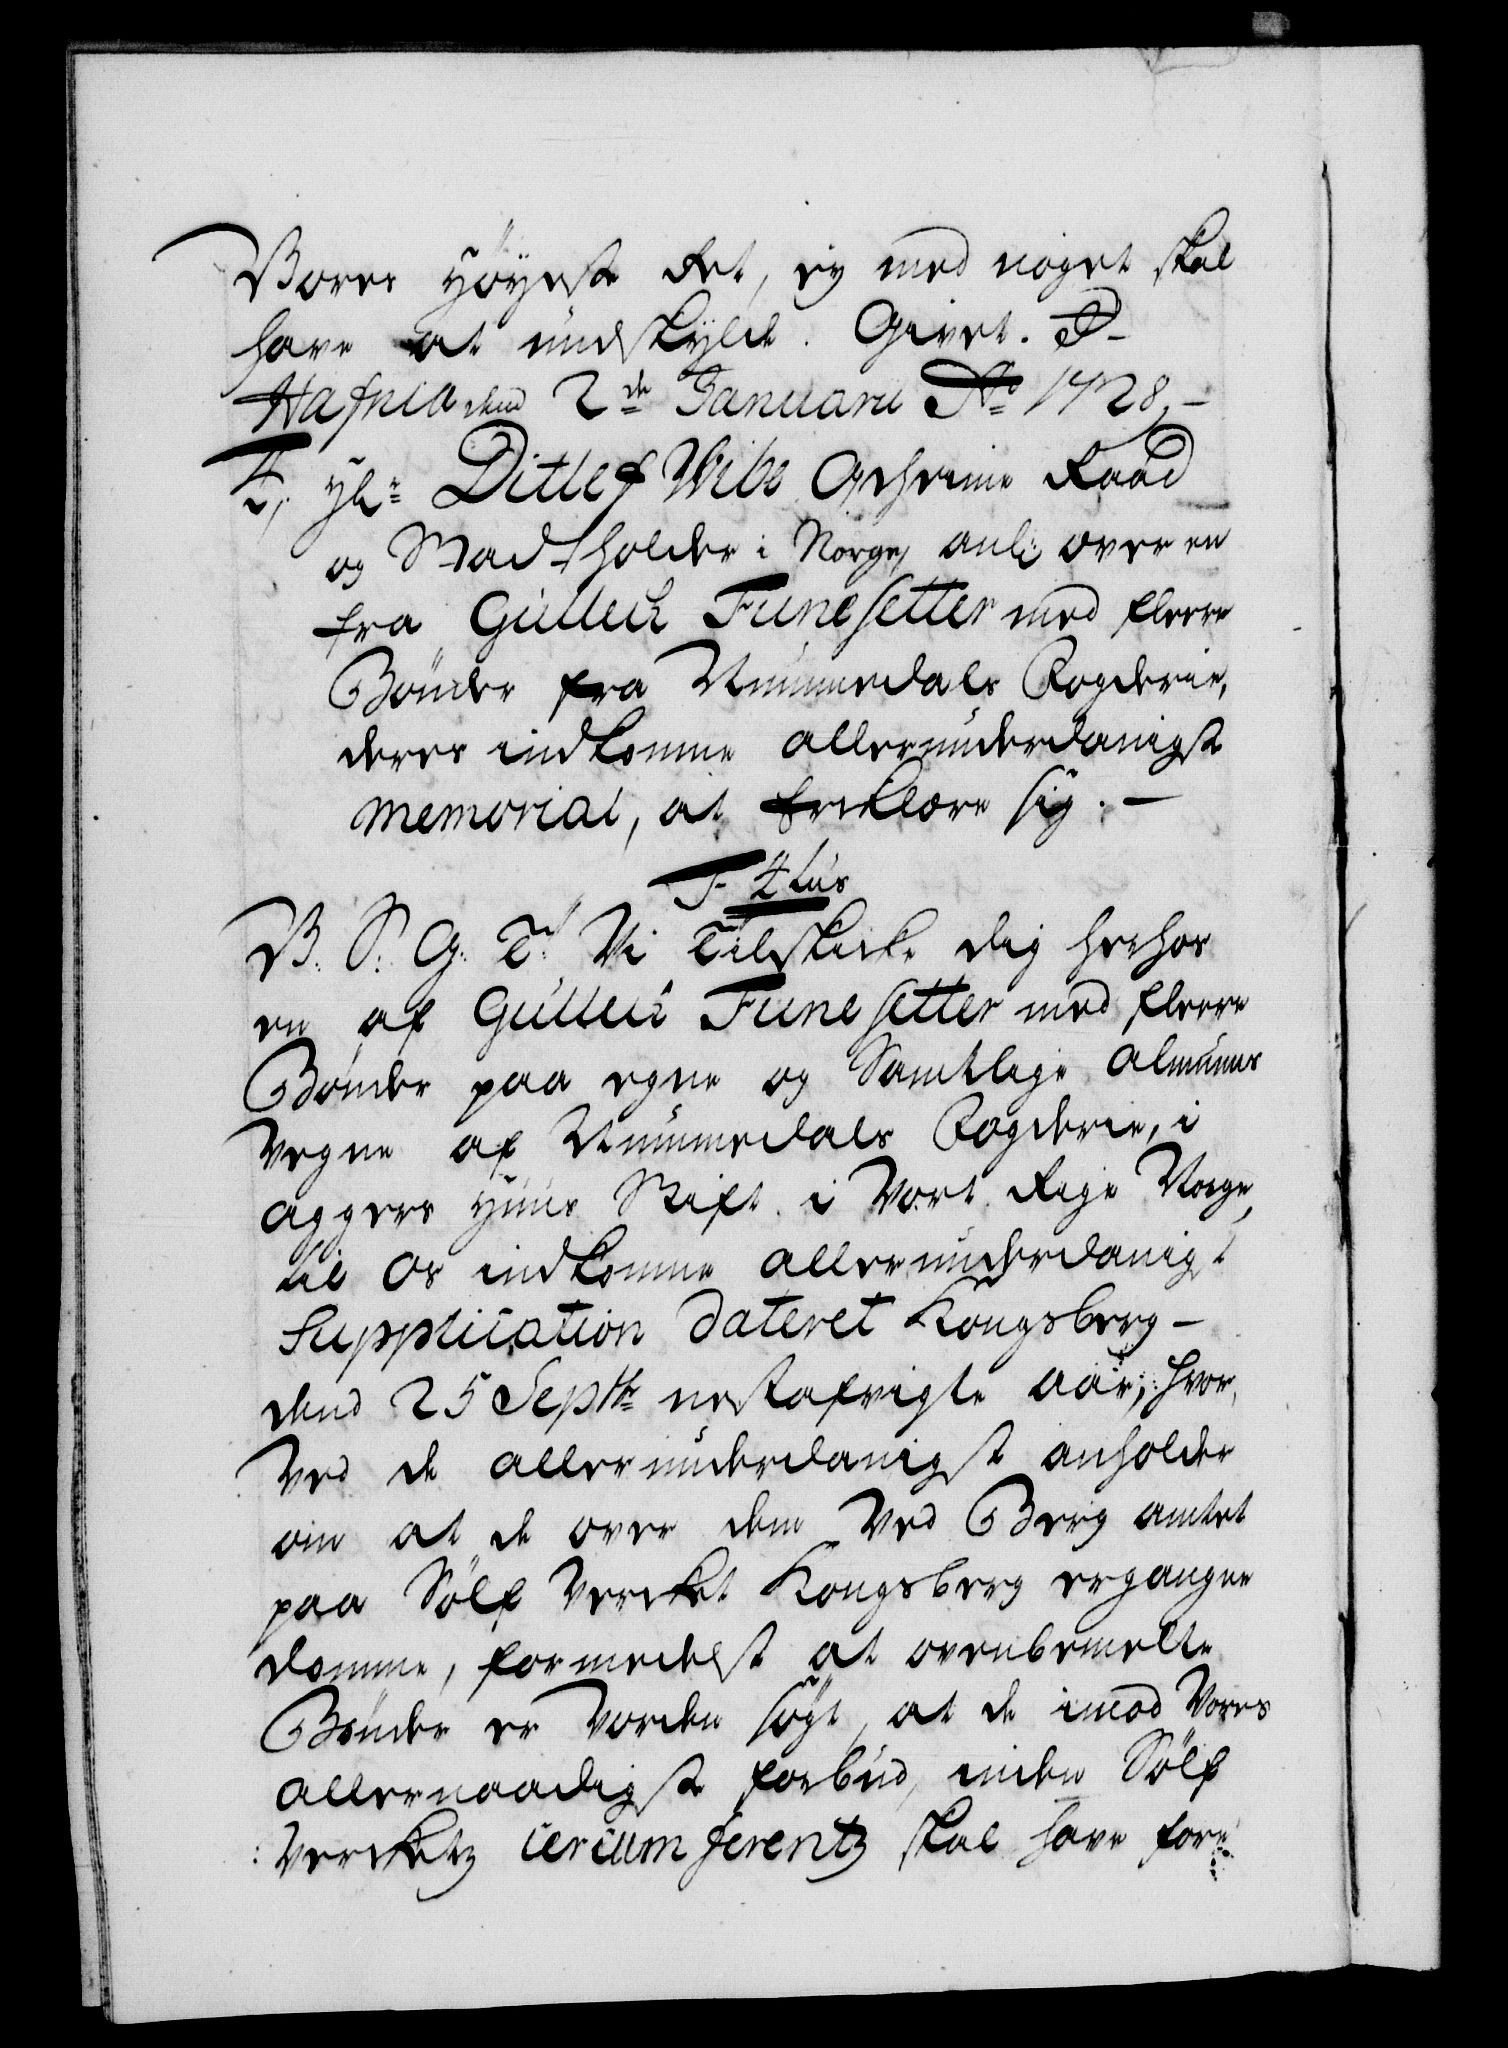 Vores Høyeste Ret, ey med noget skal
have at undskylde. Givet. P-
Hafnia dend 2de Januarii Ao 1728,-
4, Hr= Ditlef Wibe Geheime Raad
og Stadtholder i Norge, anl: over en
fra Gullich Funesetter med fleere
Bønder fra Nummedals Fogderie,
deres indkomne allerunderdanigste
Memorial, at Erklære sig. -
F 4tus
V. S. G. T. Vi Tilskicke dig herhos
en af Gullich Funesetter med fleere
Bønder paa egne og Samtlige Almues
Vegne af Nummedals Fogderie, i
Aggers Huus Stift i Vort Rige Norge,
til Os indkomne allerunderdanigst
Supplication Dateret Kongsberg -
dend 25 Septbr nestafvigte aar, hvor
Ved de allerunderdanigst anholder
om at de over dem Ved Berg amtet
paa Sølf Vercket Kongsberg ergangne
domme, formedelst at ovenbemelte
Bønder er Vorden søgt, at de imod Vores
allernaadigste forbud, inden Sølf
Verckets Circumferentz skal have fore